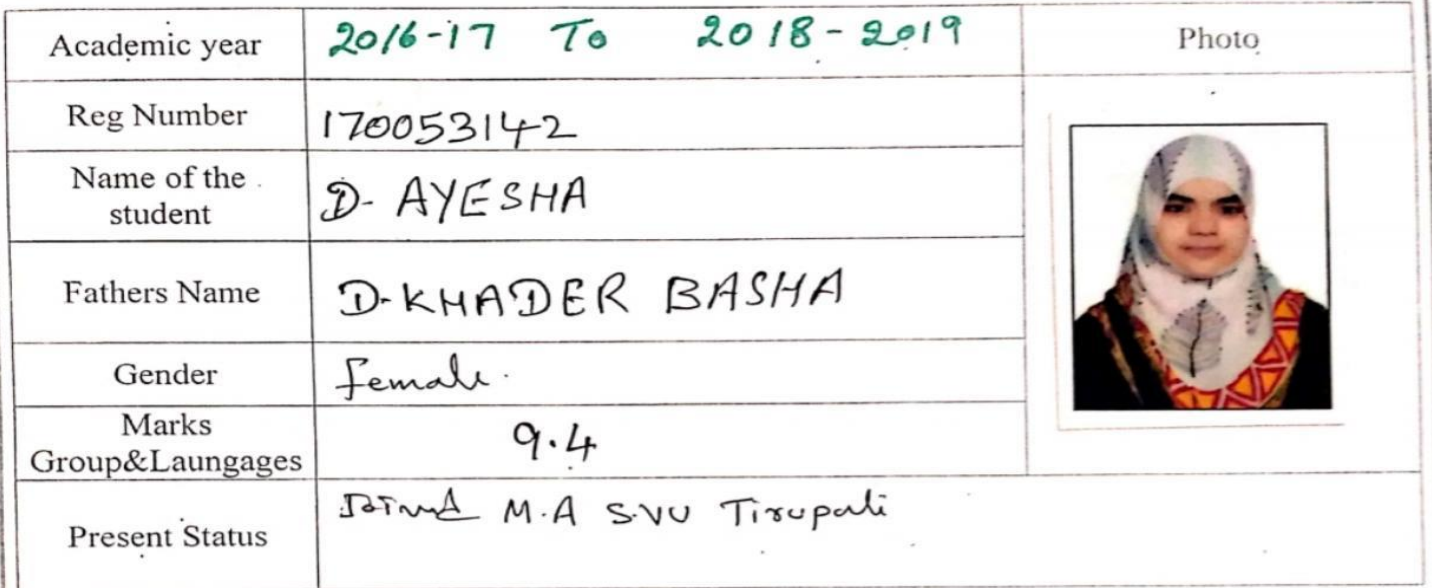 Academic year 2016-17 To 2018-2019 Photo
Reg Number 170053142
Name of the student D. AYESHA
Fathers Name D.KHADER BASHA
Gender female.
Marks Group&Laungages 9.4
Present Status Joined M.A S.VU Tirupati